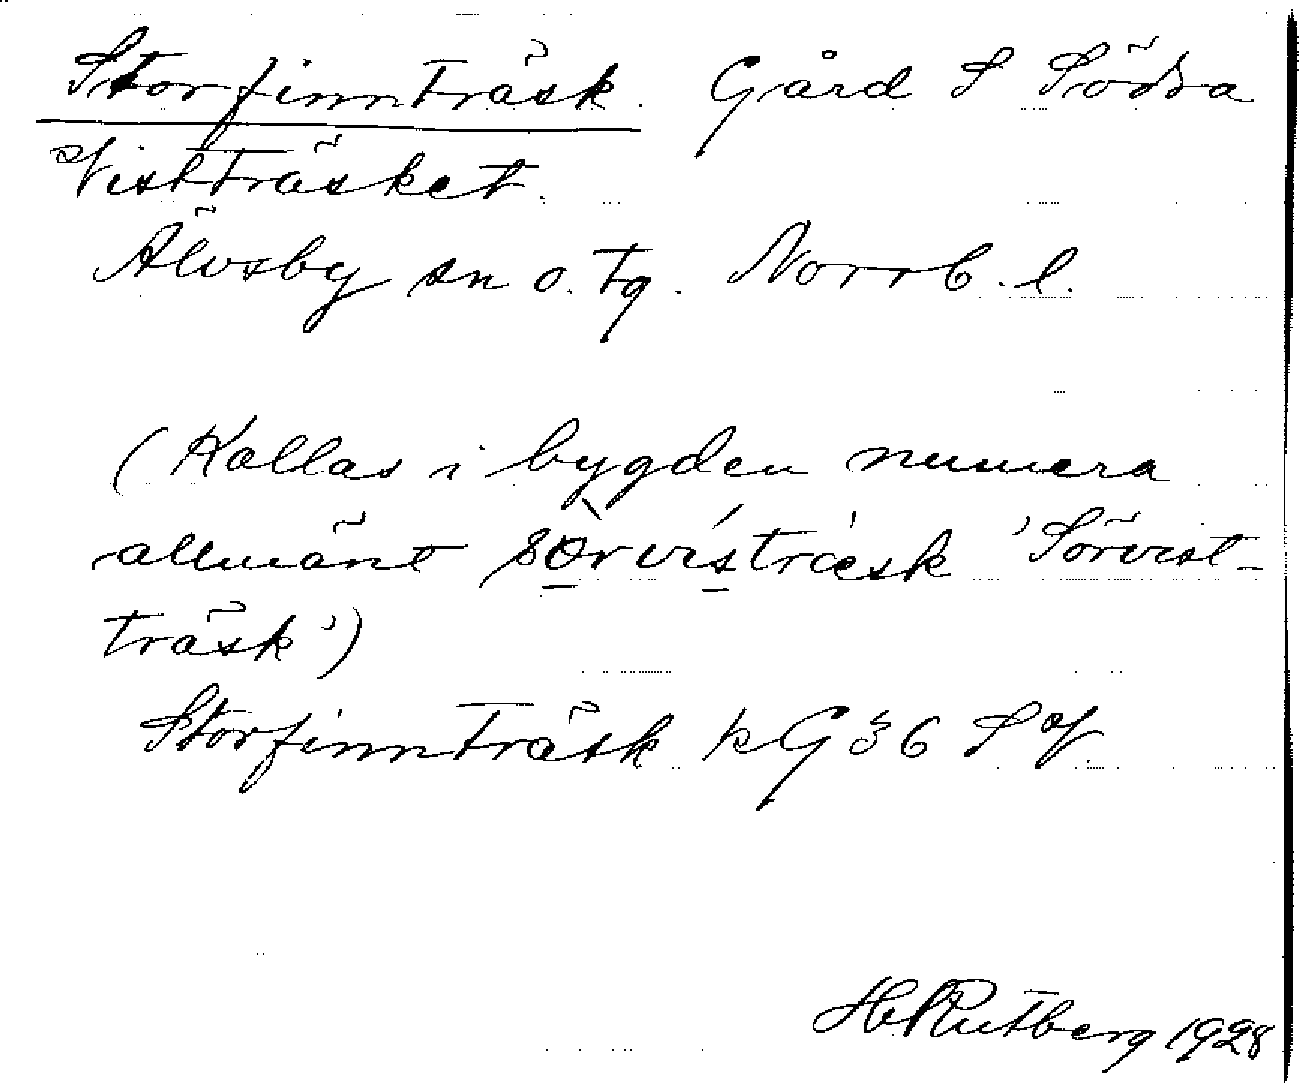 Storfinnträsk. Gård S Södra
Vistträsket.
Älvsby sn o. tg. Norrb. l.
(Kallas i bygden numera
allmänt sörvisträsk 'Sörvist-
träsk')
Storfinnträsk kG 36 SV
H Rutberg 1928